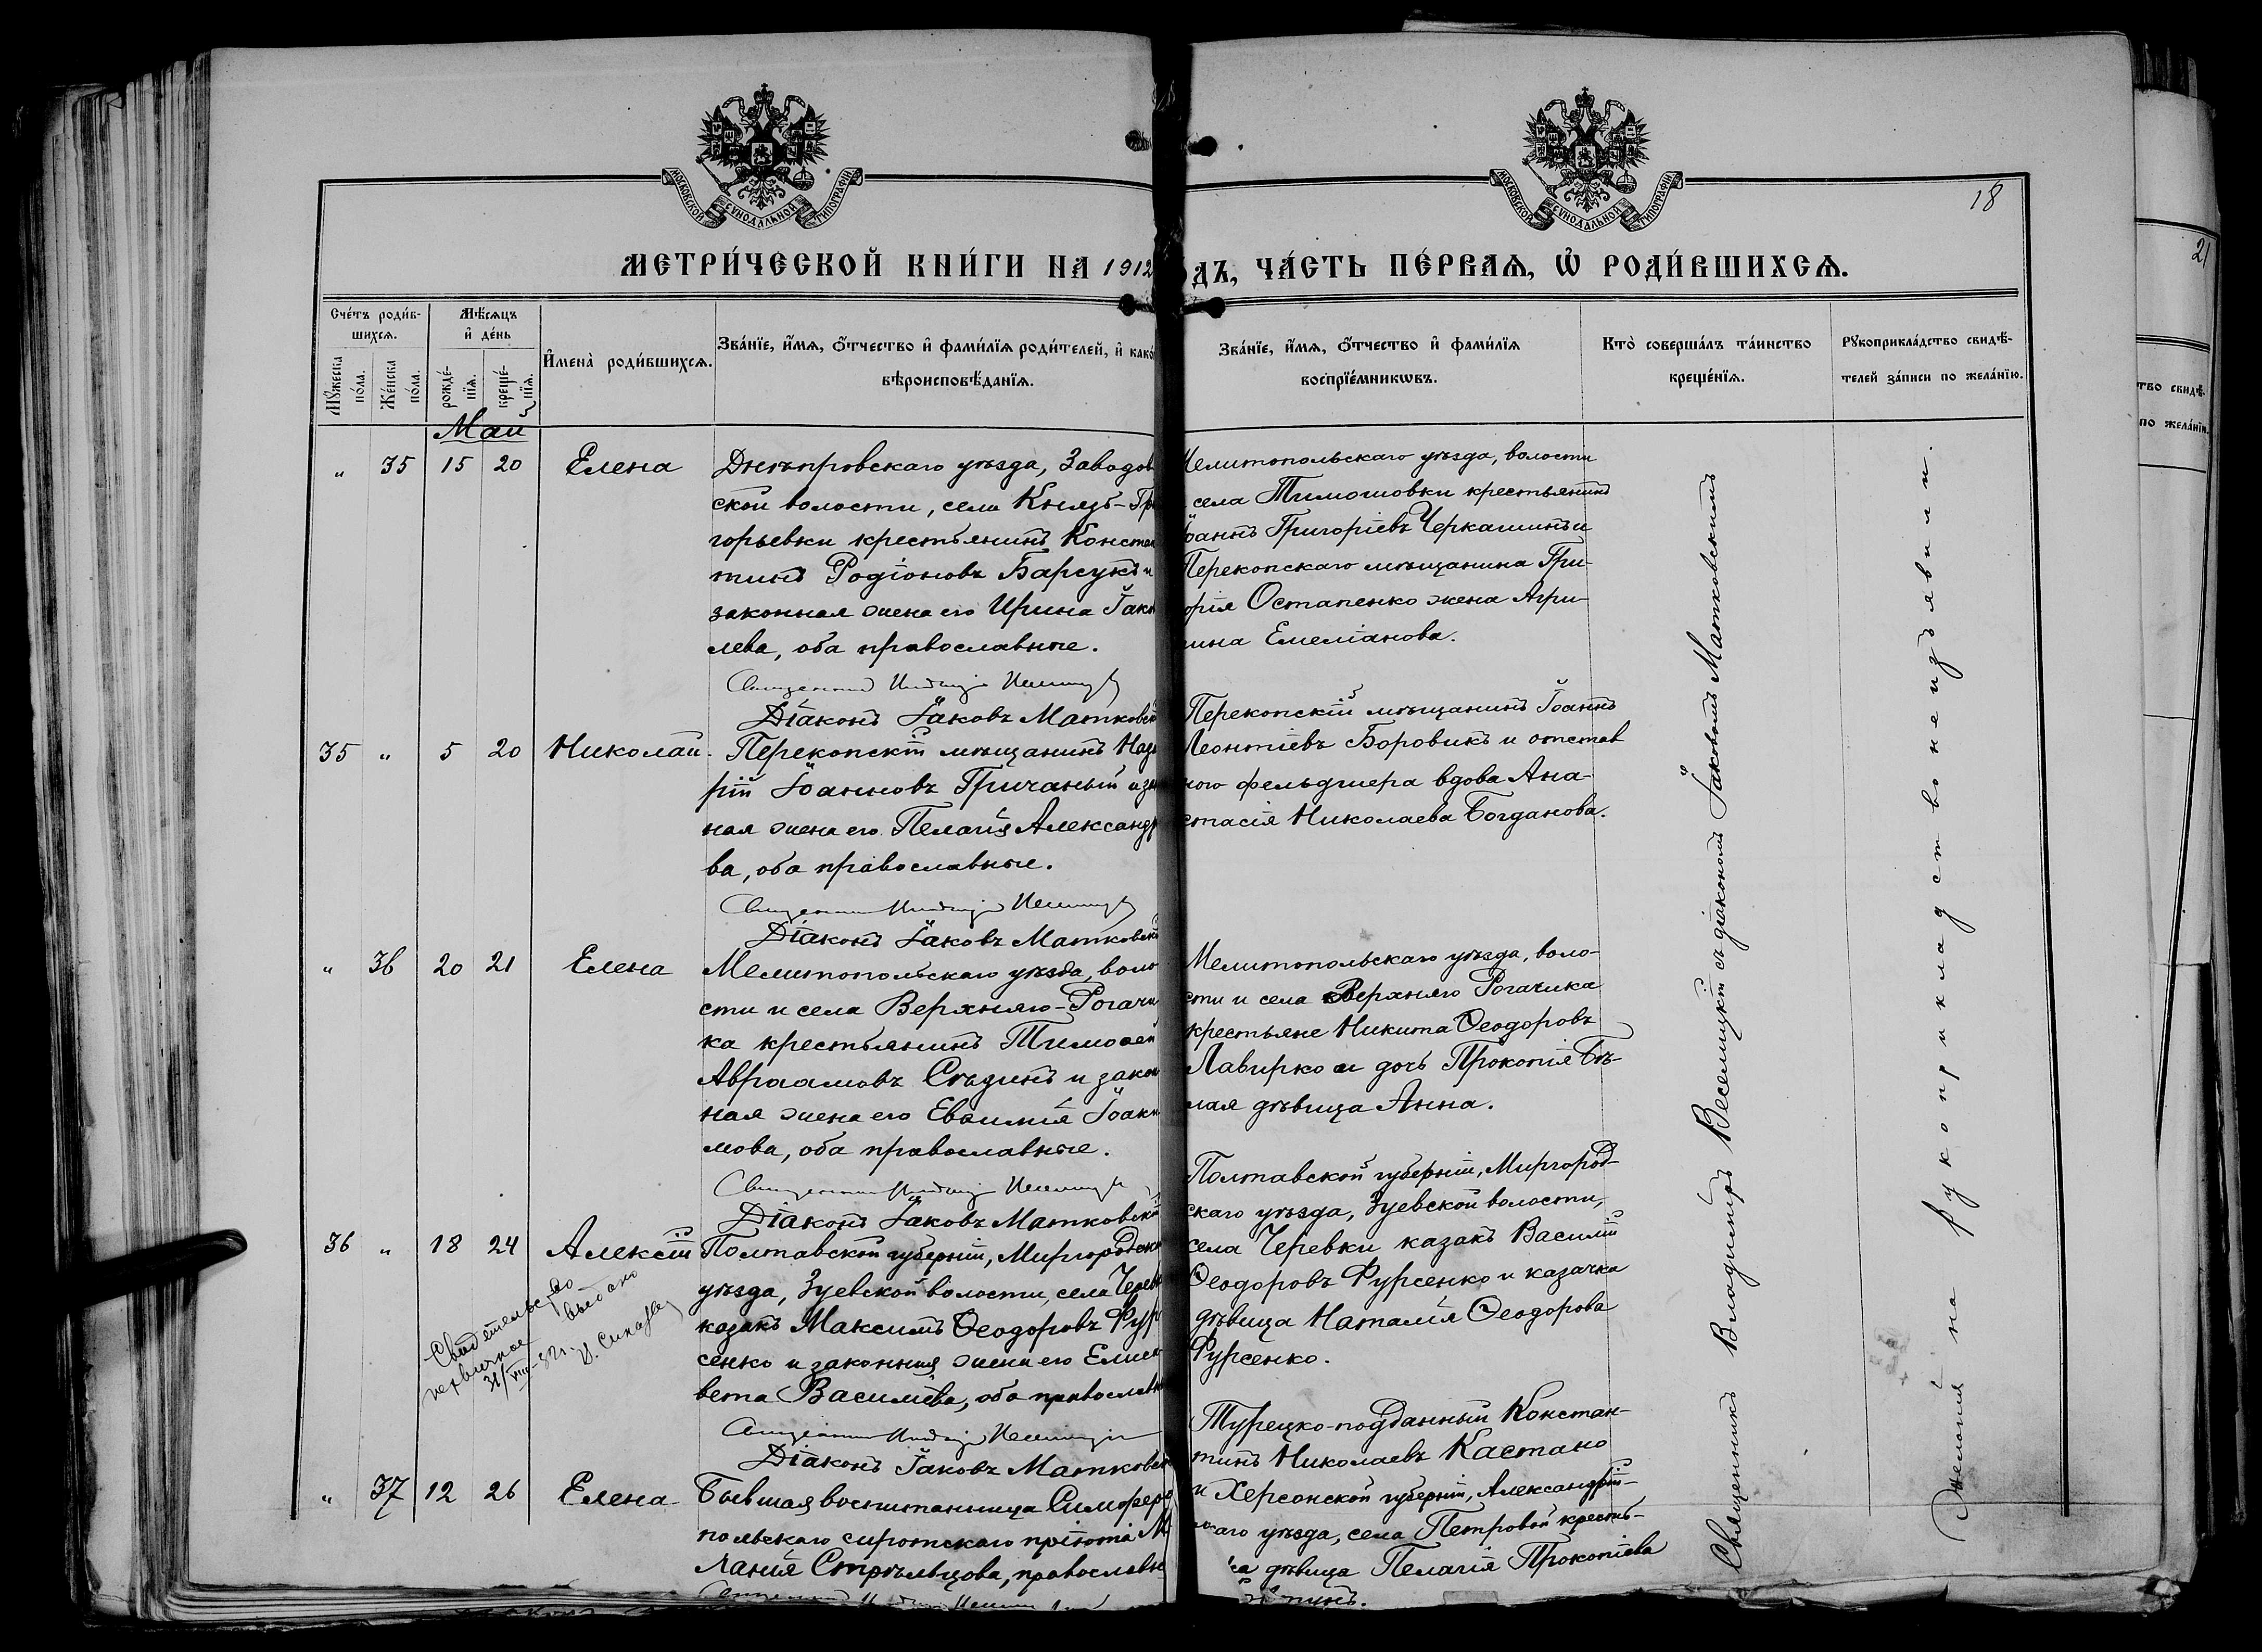 МОСКОВСКОЙ СѴНОДАЛЬНОЙ ТИПОГРАФІИ
МОСКОВСКОЙ СѴНОДАЛЬНОЙ ТИПОГРАФІИ
18
21
МЕТРИ́ЧЕСКОЙ КНИ́ГИ НА 1912
ДЪ, ЧА́СТЬ ПЕ́РВАѦ, Ѡ РОДИ́ВШИХСѦ.
Сче́тъ роди́в-
шихсѧ.
Мꙋ́жеска
по́ла.
Же́нска
по́ла.
Мѣ́сѧцъ
и҆ де́нь
рожде́-
нїѧ.
креще́-
нїѧ.
И҆мена̀ роди́вшихсѧ.
Зва́нїе, и҆́мѧ, ѻ҆́тчество и҆ фами́лїѧ роди́телей, и҆ како́
вѣроисповѣ́данїѧ.
Зва́нїе, и҆́мѧ, ѻ҆́тчество и҆ фами́лїѧ
воспрїе́мникѡвъ.
Кто̀ соверша́лъ та́инство
креще́нїѧ.
Рꙋкоприкла́дство свидѣ́-
телей за́писи по жела́нїю.
тво свидѣ́-
по жела́нїю.
Май
" 35 15 20 Елена
Днѣпровскаго уѣзда, Заводов
ской волости, села Князь-Гри
горьевки крестьянинъ Констан
тинъ Родіоновъ Барсукъ и
законная жена его Ирина Іаков
лева, оба православные.
Священникъ
Діаконъ Іаковъ Матковскій
Мелитопольскаго уѣзда, волости
села Тимошовки крестьянинъ
Іоаннъ Григоріевъ Черкашинъ и
Перекопскаго мѣщанина Гри-
горія Остапенко жена Агри-
пина Емеліанова.
35 " 5 20 Николай
Перекопскій мѣщанинъ Наза
рій Іоанновъ Гричаный и зак
ная жена его Пелагія Александр
ва, оба православные.
Священникъ
Діаконъ Іаковъ Матковскій
Перекопскій мѣщанинъ Іоаннъ
Леонтіевъ Боровикъ и отстав
ного фельдшера вдова Ана-
стасія Николаева Богданова.
" 36 20 21 Елена
Мелитопольскаго уѣзда, воло
сти и села Верхняго-Рогачи
ка крестьянинъ Тимоѳей
Авраамовъ Сѣдинъ и закон
ная жена его Евѳимія Іоаки
мова, оба православные.
Священникъ
Діаконъ Іаковъ Матковскій
Мелитопольскаго уѣзда, воло-
сти и села Верхняго Рогачика
крестьяне Никита Ѳеодоровъ
Лавирко и дочь Прокопія Бѣ-
лая дѣвица Анна.
36 " 18 24 Алексій
Свидетельство
первичное выдано
31/VIII-32г.
Полтавской губерніи, Миргородска
уѣзда, Зуевской волости, села Черев
казакъ Максимъ Ѳеодоровъ Фур
сенко и законная жена его Елиса
вета Василіева, оба православн
Священникъ
Діаконъ Іаковъ Матковск
Полтавской губерніи, Миргород-
скаго уѣзда, Зуевской волости,
села Черевки казакъ Василій
Ѳеодоровъ Фурсенко и казачка
дѣвица Наталія Ѳеодорова
Фурсенко.
" 37 12 26 Елена
Бывшая воспитанница Симферо
польскаго сиротскаго пріюта М
ланія Стрѣльцова, православн
Турецко-подданный Констан-
тинъ Николаевъ Кастано
и Херсонской губерніи, Александрій-
скаго уѣзда, села Петровой кресть-
ка дѣвица Пелагія Прокопіева
Священникъ Владиміръ Веселицкій съ діакономъ Іаковомъ Матковскимъ
Желанія на рукоприкладство не изъявили.